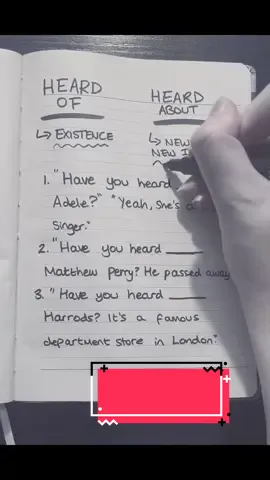 HEARD OF
HEARD ABOUT
↳ EXISTENCE
↳ NEW
NEW I
1. "Have you heard
Adele?" "Yeah, She's a
Singer."
2. "Have you heard ____
Matthew Perry? He passed away
3. "Have you heard ____
Harrods? It's a famous
department store in London."